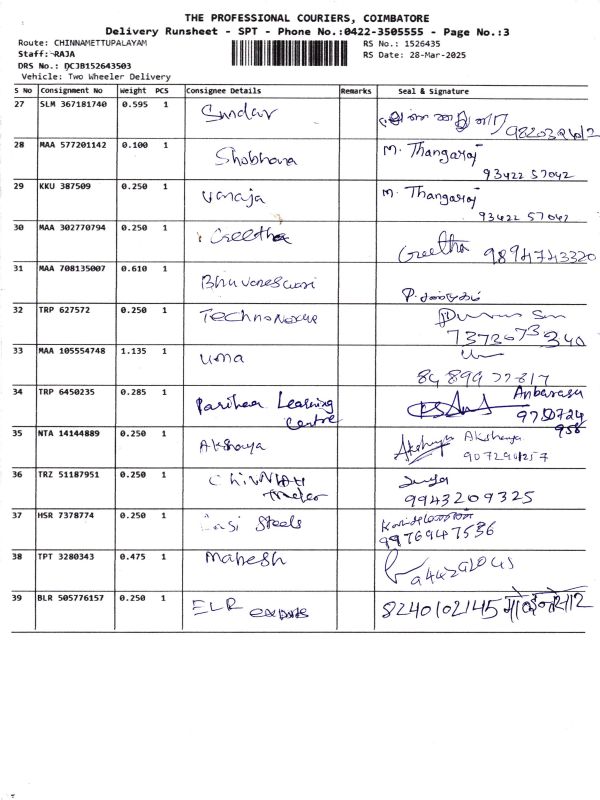 THE PROFESSIONAL COURIERS, COIMBATORE
Delivery Runsheet - SPT - Phone No.:0422-3505555 - Page No.:3
Route: CHINNAMETTUPALAYAM RS No.: 1526435
Staff: RAJA RS Date: 28-Mar-2025
DRS No.: DCJB152643503
Vehicle: Two Wheeler Delivery
S No Consignment No Weight PCS Consignee Details Remarks Seal & Signature
27 SLM 367181740 0.595 1 Sundar
28 MAA 577201142 0.100 1 Shobhana M. Thangaraj
93422 57042
29 KKU 387509 0.250 1 Vanaja M. Thangaraj
93422 57042
30 MAA 302770794 0.250 1 Geetha Geetha 9894743320
31 MAA 708135007 0.610 1 Bhuvaneswari
32 TRP 627572 0.250 1
7372673340
33 MAA 105554748 1.135 1 uma
34 TRP 6450235 0.285 1 Parihar Learning Centre Anbarasu
9750724
958
35 NTA 14144889 0.250 1 Akshaya Akshaya Akshaya
9072901257
36 TRZ 51187951 0.250 1
9943209325
37 HSR 7378774 0.250 1 Steels
9976947536
38 TPT 3280343 0.475 1 Mahesh
39 BLR 505776157 0.250 1 ELR exports 8240102145